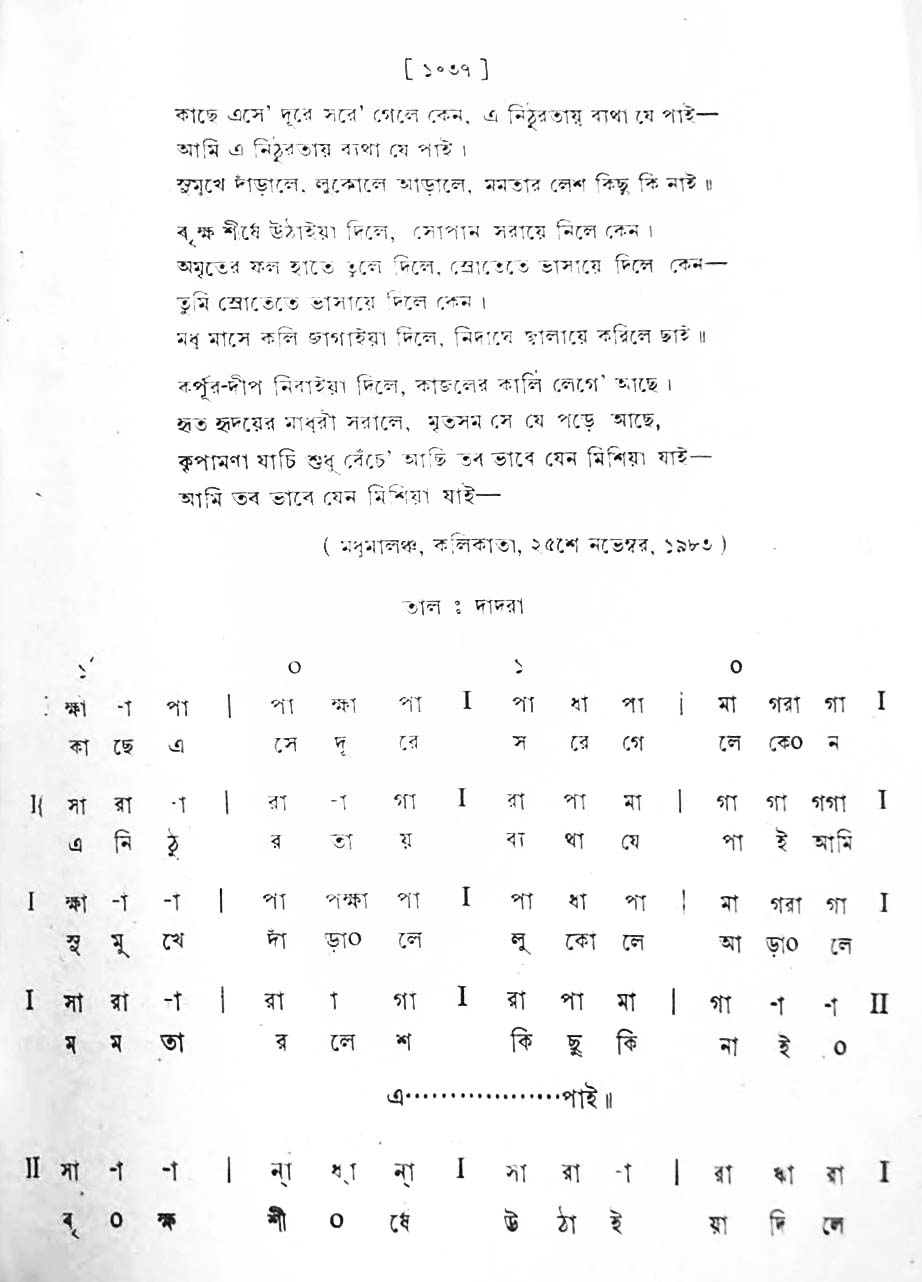 [ ১০৩৭ ]
কাছে এসে' দূরে সরে' গেলে কেন, এ নিঠুরতায় ব্যথা যে পাই—
আমি এ নিঠুরতায় ব্যথা যে পাই ।
সুমুখে দাঁড়ালে, লুকোলে আড়ালে, মমতার লেশ কিছু কি নাই ॥
বৃক্ষ শীর্ষে উঠাইয়া দিলে, সোপান সরায়ে নিলে কেন ।
অমৃতের ফল হাতে তুলে দিলে, স্রোতেতে ভাসায়ে দিলে কেন—
তুমি স্রোতেতে ভাসায়ে দিলে কেন ।
মধু মাসে কলি জাগাইয়া দিলে, নিদাঘে জ্বালায়ে করিলে ছাই ॥
কর্পূর-দীপ নিবাইয়া দিলে, কাজলের কালি লেগে' আছে ।
হৃত হৃদয়ের মাধুরী সরালে, মৃতসম সে যে পড়ে আছে,
কৃপামণা যাচি শুধু বেঁচে' আছি তব ভাবে যেন মিশিয়া যাই—
আমি তব ভাবে যেন মিশিয়া যাই—
( মধুমালঞ্চ, কলিকাতা, ২৫শে নভেম্বর, ১৯৮৩ )
তাল : দাদরা
১´ ০ ১ ০
ক্ষা -া পা | পা ক্ষা পা I পা ধা পা | মা গরা গা I
কা ছে এ সে দূ রে স রে গে লে কে০ ন
I{ সা রা -া | রা -া গা I রা পা মা | গা গা গগা I
এ নি ঠু র তা য় ব্য থা যে পা ই আমি
I ক্ষা -া -া | পা পক্ষা পা I পা ধা পা | মা গরা গা I
সু মু খে দাঁ ড়া০ লে লু কো লে আ ড়া০ লে
I সা রা -া | রা া গা I রা পা মা | গা -া -া II
ম ম তা র লে শ কি ছু কি না ই ০
এ··················পাই॥
II সা -া -া | ন্া ধ্া ন্া I সা রা -া | রা ক্ষা রা I
বৃ ০ ক্ষ শী ০ র্ষে উ ঠা ই য়া দি লে